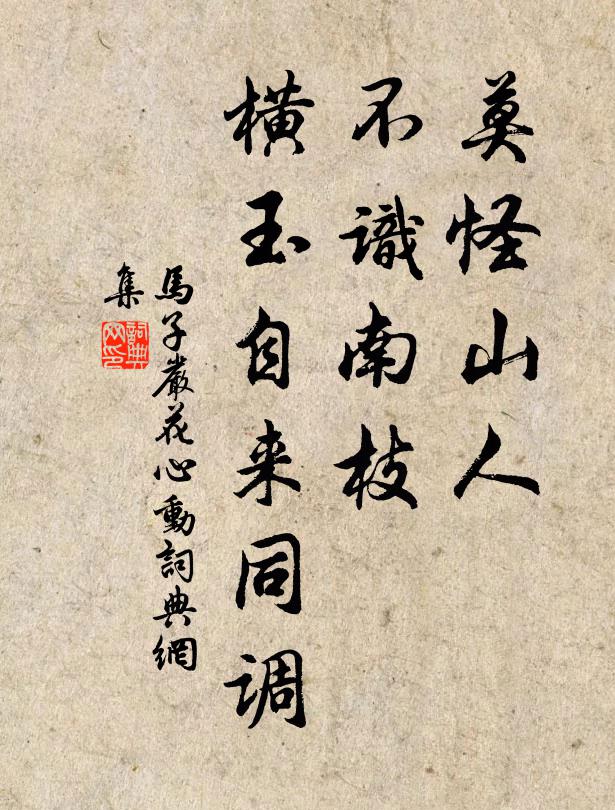 莫怪山人
不識南枝
橫玉自来同调
馬子嚴花心動詞典網
集
詞典
网印